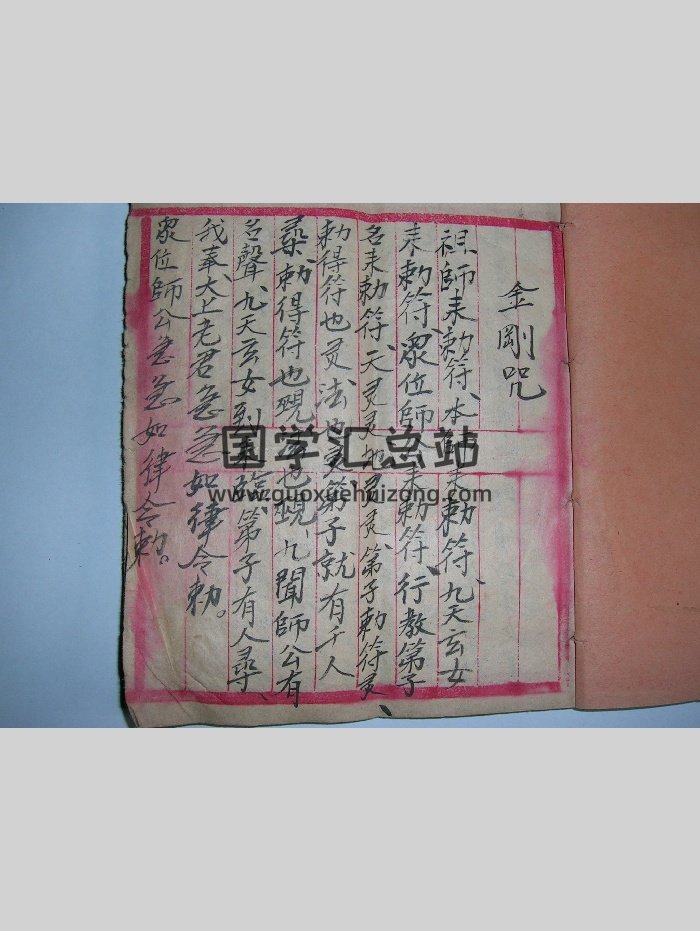 金剛咒
祖師来勅符、本師来勅符、九天玄女
来勅符、眾位師公来勅符、行教弟子
名来勅符、天灵灵地灵灵、弟子勅符灵
勅得符也灵法也灵、弟子就有千人
勅得符也現法也現、九聞師公有
名聲、九天玄女到来臨、弟子有人尋、
我奉太上老君急急如律令勅。
眾位師公急急如律令勅。
国学汇总站
www.guoxuehuizong.com